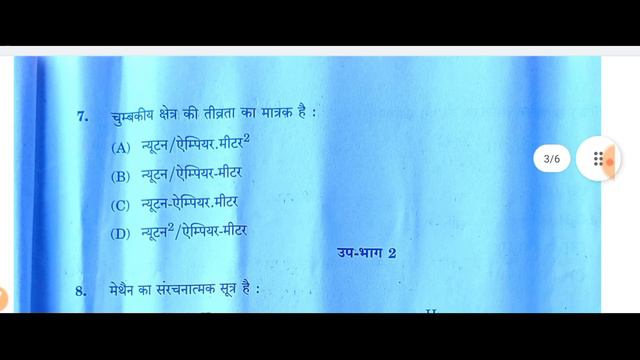 7. चुम्बकीय क्षेत्र की तीव्रता का मात्रक है :
(A) न्यूटन/ऐम्पियर.मीटर²
(B) न्यूटन/ऐम्पियर-मीटर
(C) न्यूटन-ऐम्पियर.मीटर
(D) न्यूटन²/ऐम्पियर-मीटर
3/6
उप-भाग 2
8. मेथैन का संरचनात्मक सूत्र है :